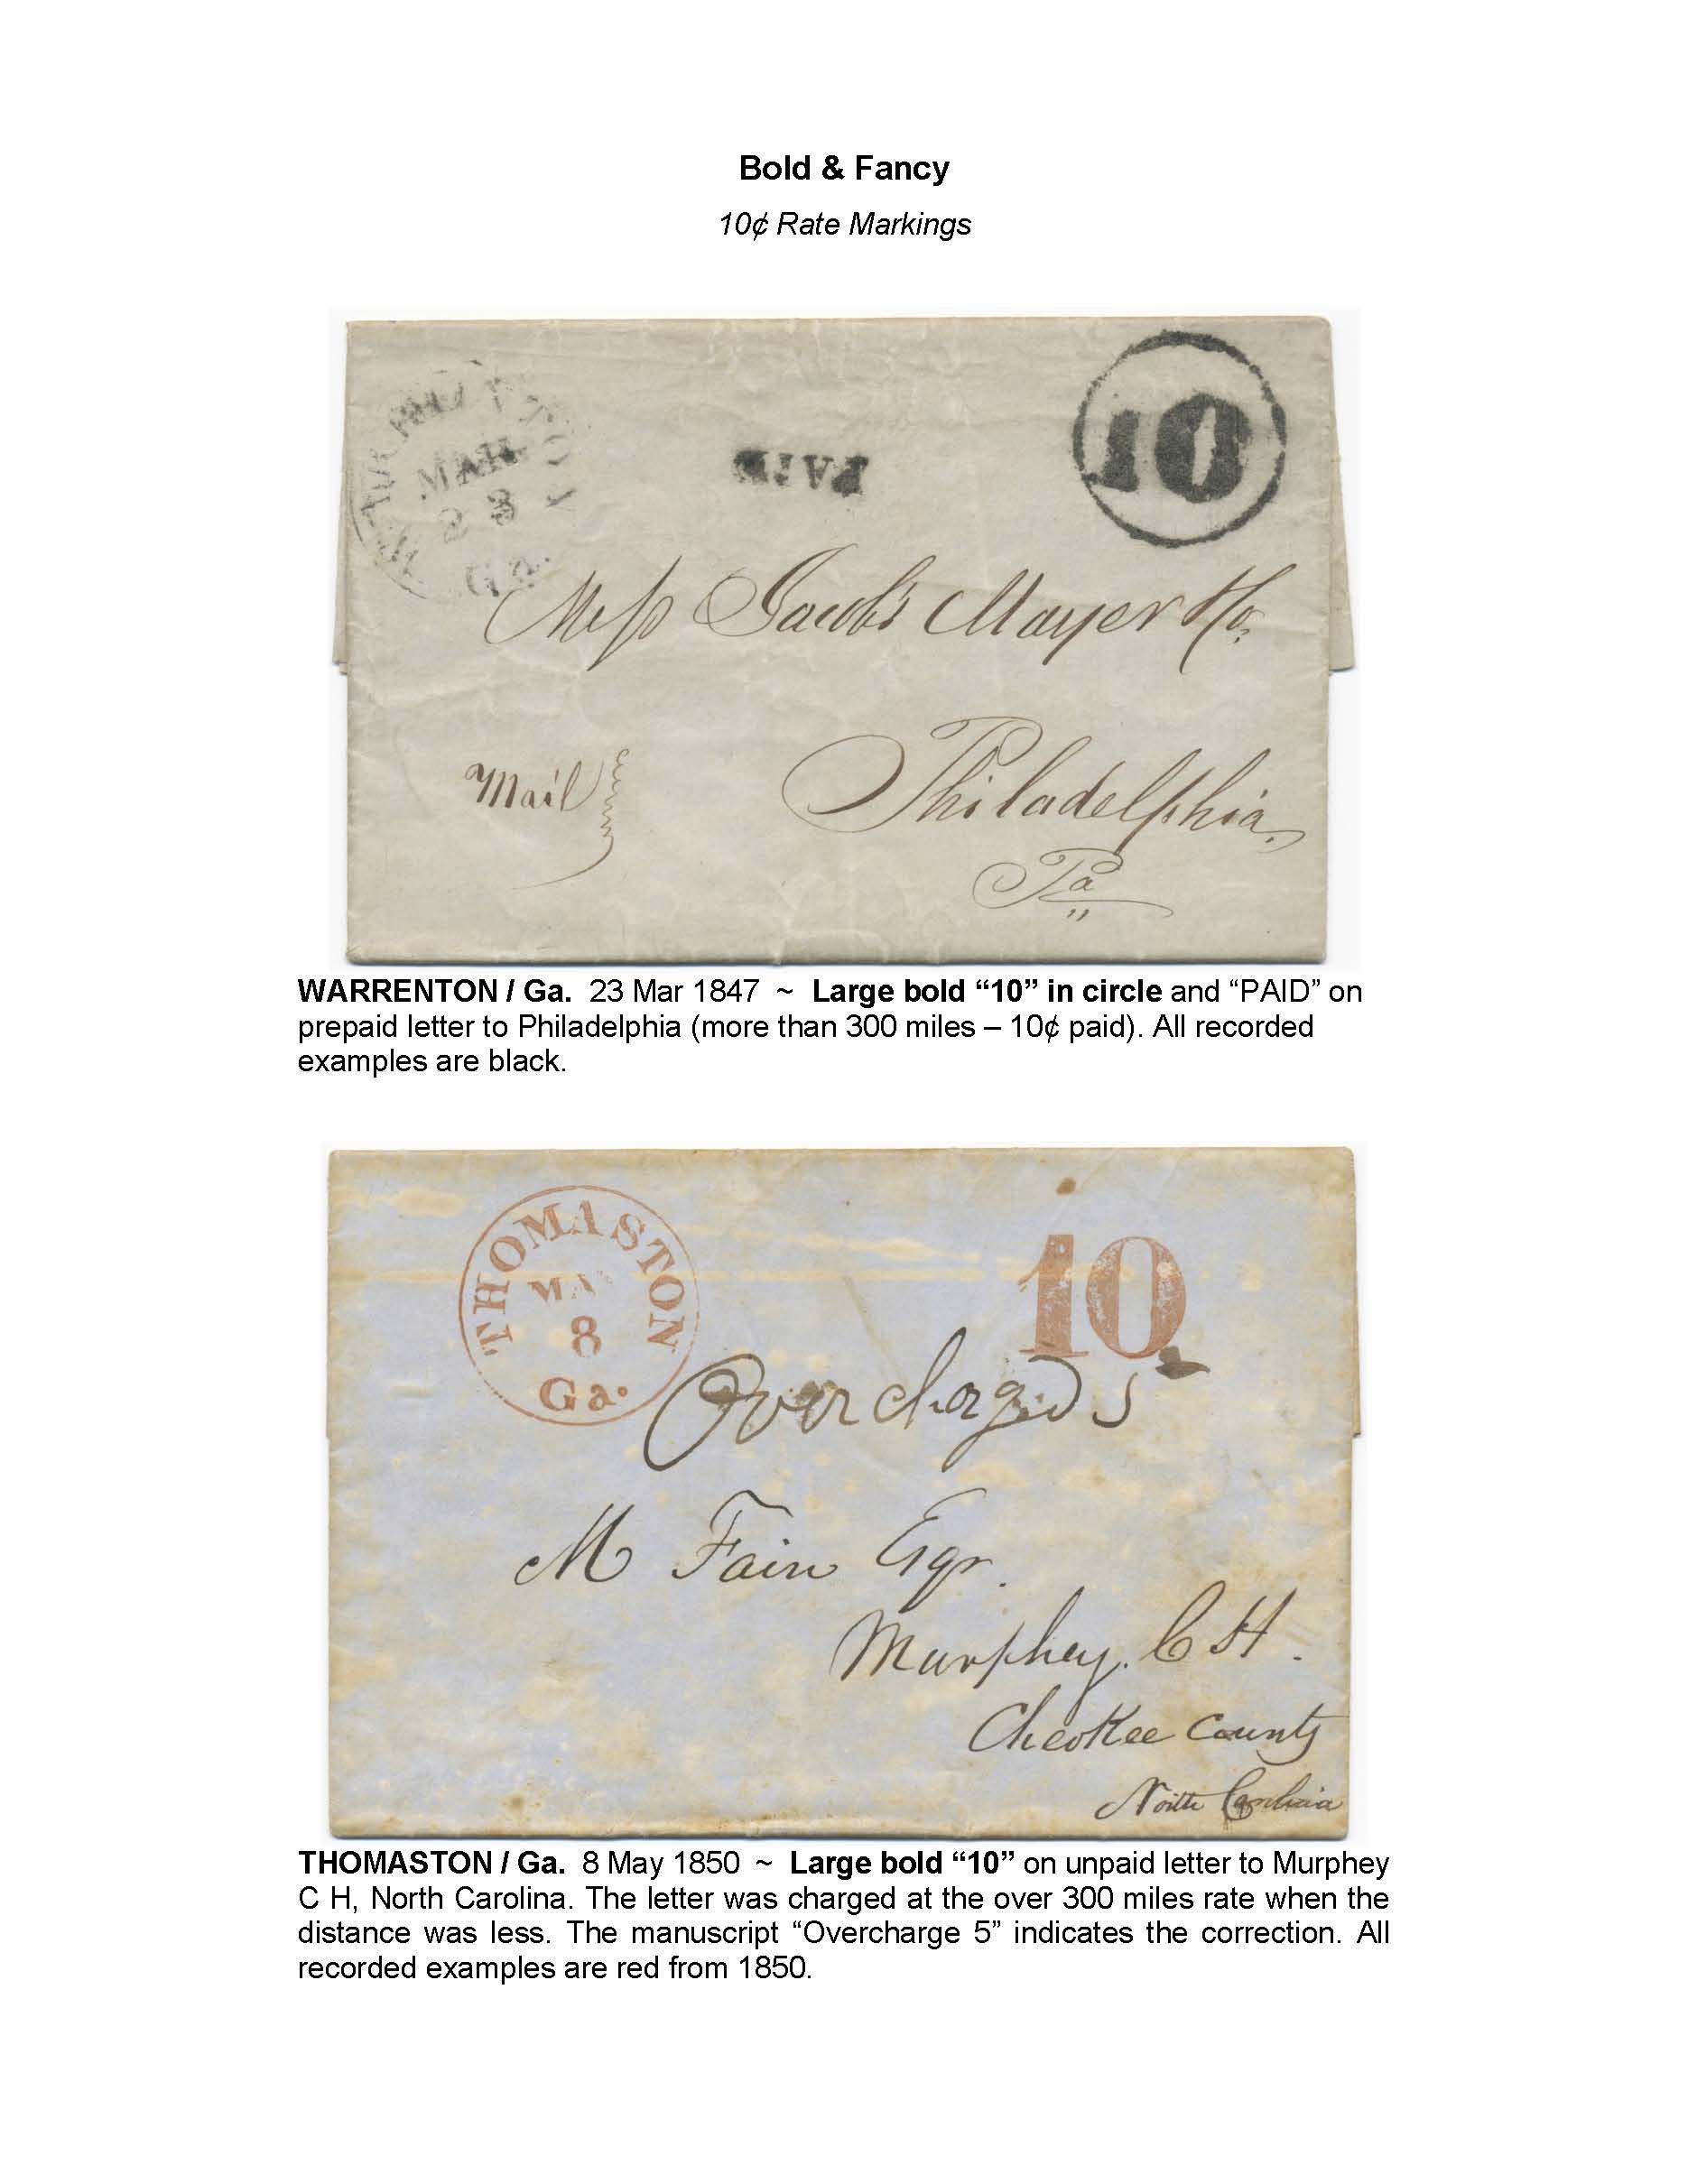 Bold & Fancy
10¢ Rate Markings
WARRENTON
MAR
23
Ga.
PAID
10
Mess Jacobs Mayer & Co.
Mail
Philadelphia,
Pa
WARRENTON / Ga. 23 Mar 1847 ~ Large bold “10” in circle and “PAID” on
prepaid letter to Philadelphia (more than 300 miles – 10¢ paid). All recorded
examples are black.
THOMASTON
MAY
8
Ga.
10
Overcharged 5
M Fain Esqr.
Murphey. C H.
Cheokee County
North Carolina
THOMASTON / Ga. 8 May 1850 ~ Large bold “10” on unpaid letter to Murphey
C H, North Carolina. The letter was charged at the over 300 miles rate when the
distance was less. The manuscript “Overcharge 5” indicates the correction. All
recorded examples are red from 1850.